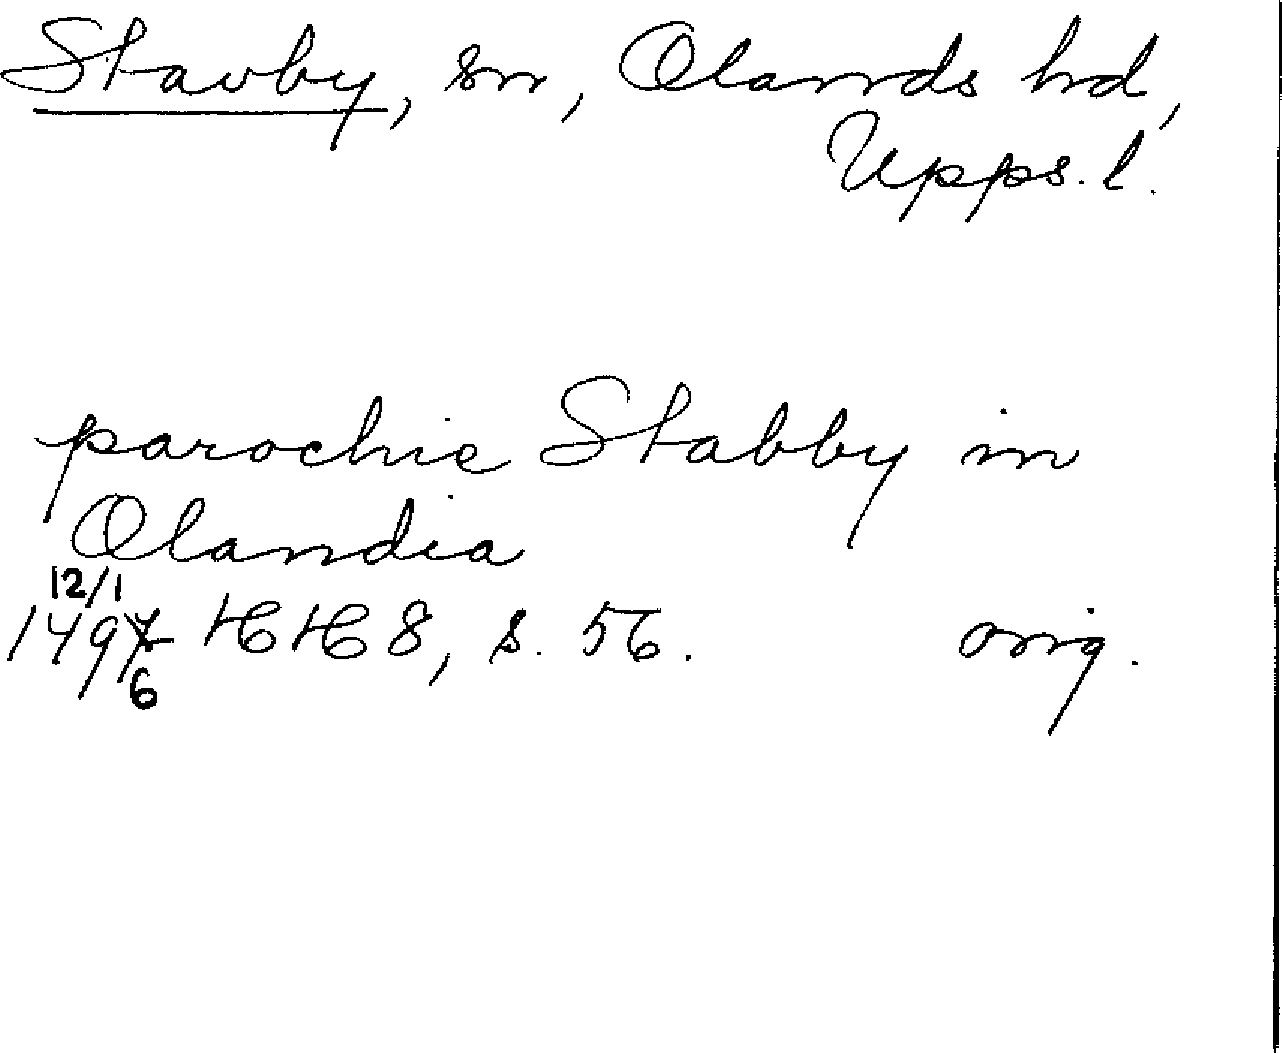 Stavby, sn, Olands hd,
Upps. l.
parochie Stabby in
Olandia
12/1
1497 HH 8, s. 56. orig.
6